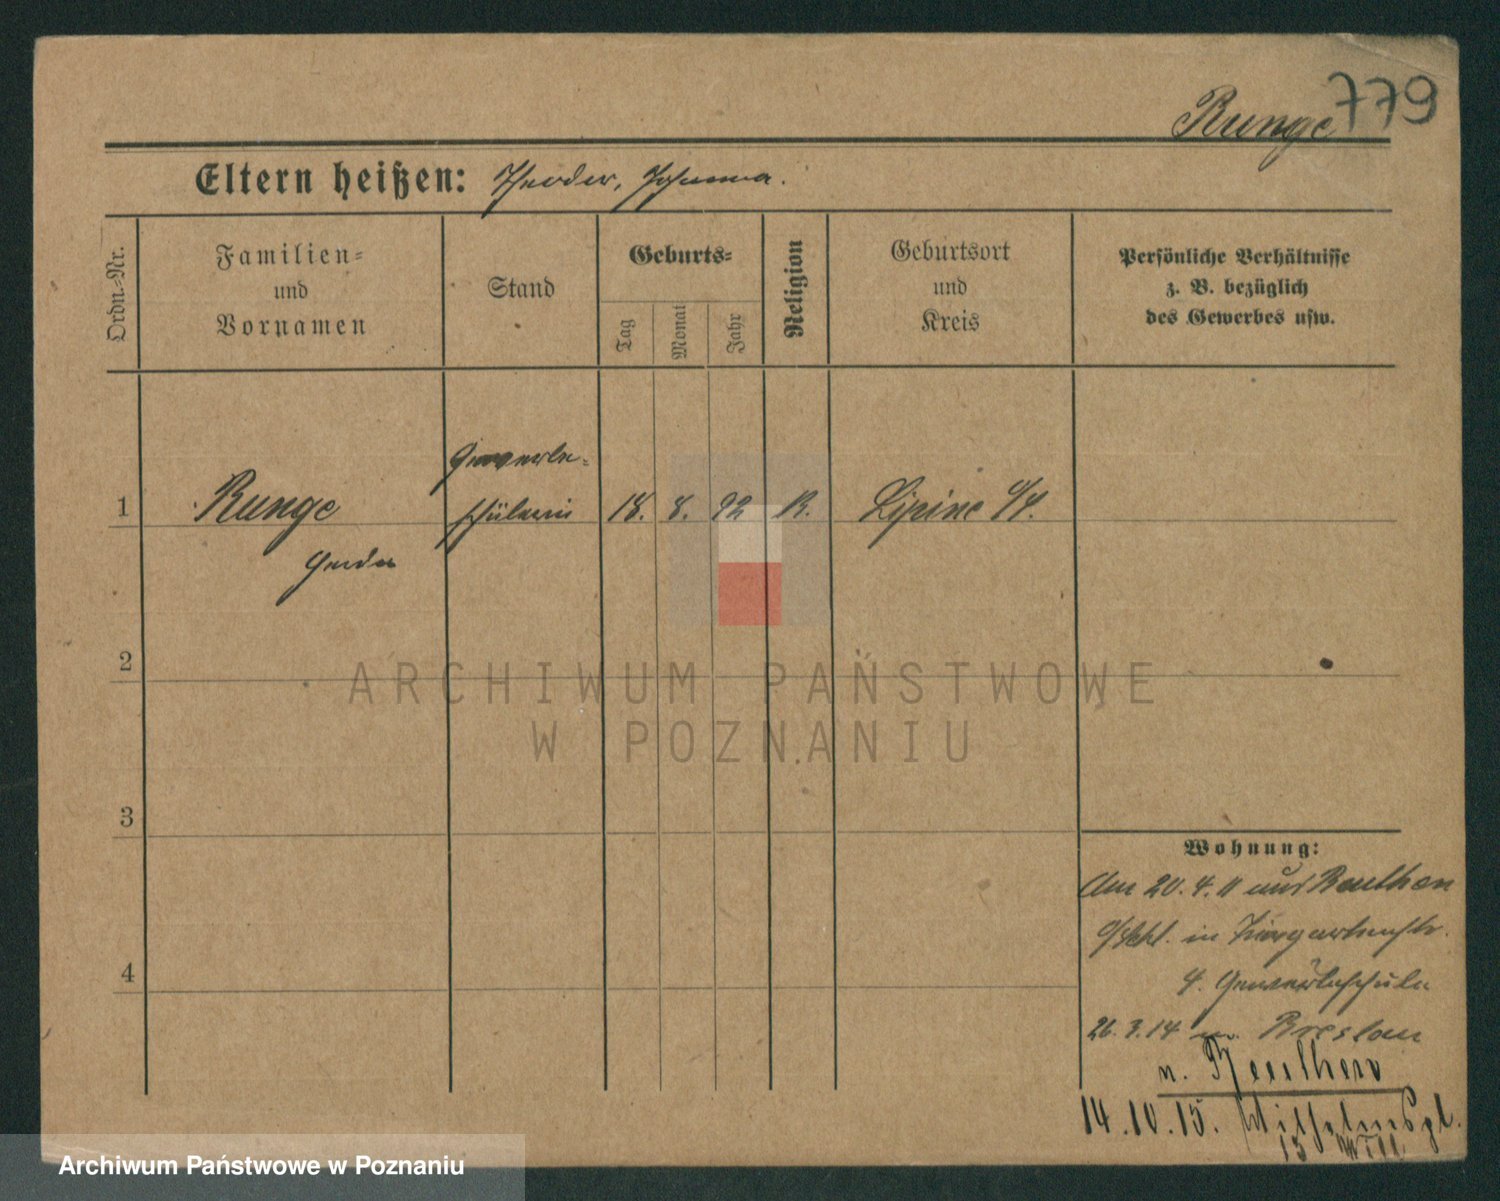 779
Runge
Eltern heißen: Theodor, Johanna.
Ordn.-Nr.
Familien-
und
Vornamen
Stand
Geburts-
Tag
Monat
Jahr
Religion
Geburtsort
und
Kreis
Persönliche Verhältnisse
z. B. bezüglich
des Gewerbes usw.
Gewerbe-
1 Runge schülerin 18. 8. 92 K. Lipine O/S.
Gerda
2
ARCHIWUM PAŃSTWOWE
W POZNANIU
3
Wohnung:
Am 20. 4. 11 aus Beuthen
O/Schl. in Tiergartenstr.
4. Gewerbeschule
26. 3. 14 n. Breslau
n. Beuthen
4
14.10.15. Wilhelmspl.
15
Archiwum Państwowe w Poznaniu